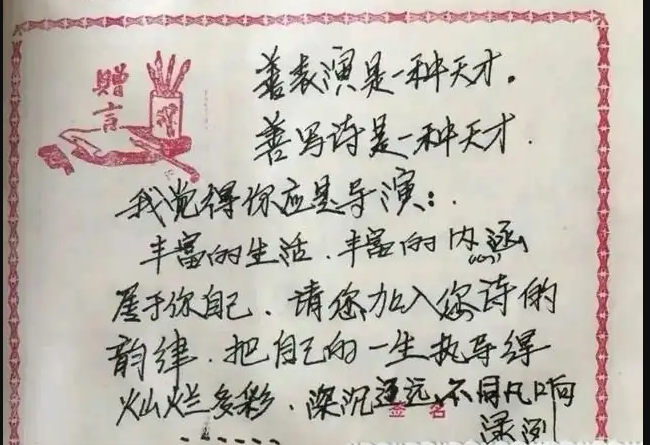 赠言
善表演是一种天才。
善写诗是一种天才.
我觉得你应是导演：.
丰富的生活.丰富的内涵
属于你自己.请您加入您诗的
韵律.把自己的一生执导得
灿烂多彩.深沉遥远,不同凡响
签名